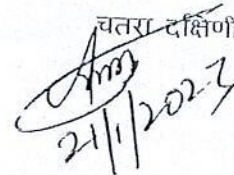 चतरा दक्षिणी
21/1/2023